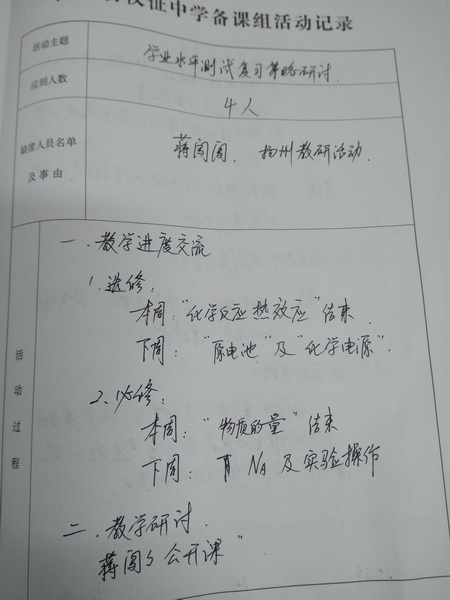 仪征中学备课组活动记录
活动主题 学业水平测试复习策略研讨
应到人数 4人
缺席人员名单及事由 蒋闰闰、扬州教研活动.
活动过程
一、教学进度交流
1.选修:
本周:"化学反应热效应"结束.
下周:"原电池"及"化学电源".
2.必修:
本周:"物质的量"结束
下周: Na及实验操作
二、教学研讨.
公开课"